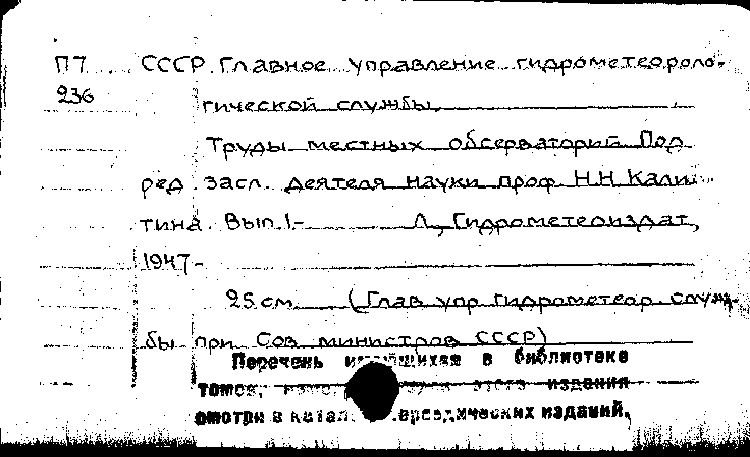 П7 СССР. Главное управление гидрометеороло-
236 гической службы.
Труды местных обсерваторий. Под
ред. засл. деятеля науки проф. Н.Н. Кали-
тина. Вып. 1- Л., Гидрометеоиздат,
1947-
25 см. (Глав. упр. гидрометеор. служ-
бы при Сов. министров СССР)
Перечень имеющихся в библиотеке
томов, этого издания
смотри в катал. периодических изданий.